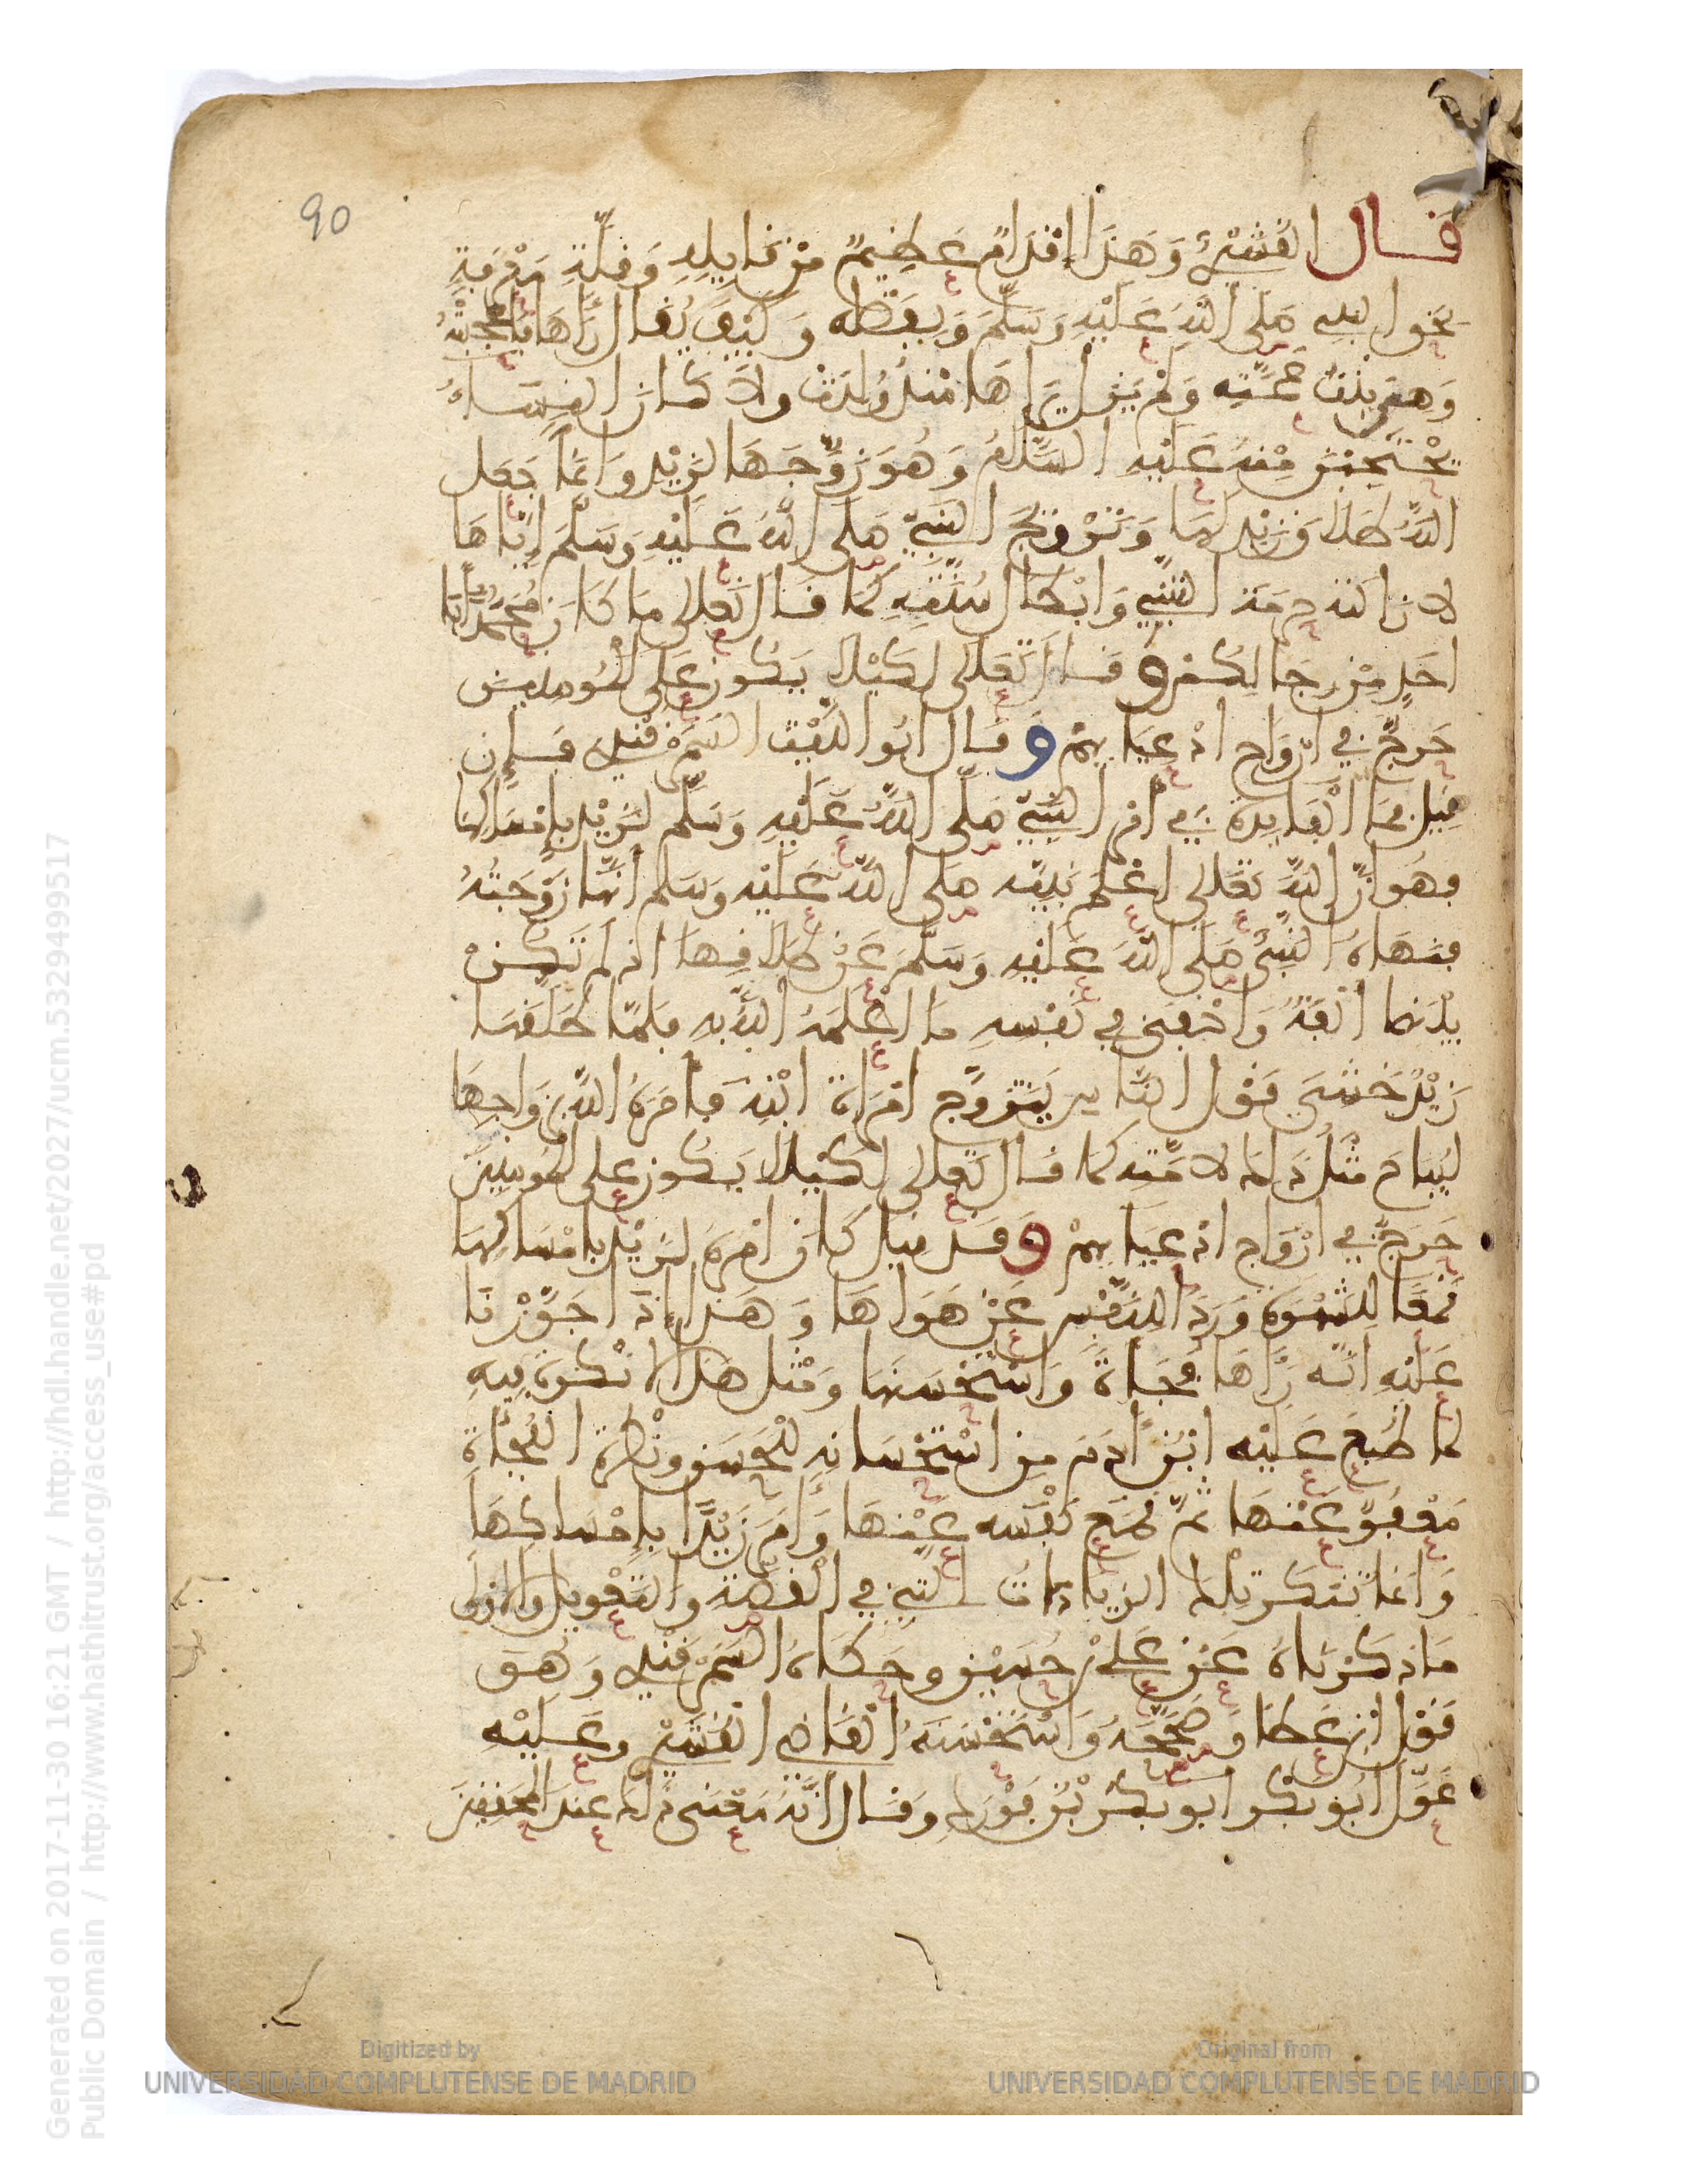 90
قال القشيري وَهَذا إقدامٌ عَظيمٌ مِنْ قايلِهِ وَقلّةِ مَعْرِفةٍ
بحق النبي صلى اللّهُ عَلَيْهِ وَسَلّمَ وَبِفَضْلِه وَكَيْفَ يُقال رَآهَا فَأعجبَتْهُ
وَهِيَ بِنْتُ عَمّتِه وَلَمْ يَزل يَرَاهَا مُنْذُ وُلِدَتْ ولا كان النِّسَاءُ
يَحْتَجِبْنَ مِنْهُ عَلَيْهِ السَّلامُ وَهُوَ زَوَّجَهَا لِزَيْدٍ وَإنّما جَعَلَ
اللَّهُ طلاقَ زيْدٍ لهَا وَتزْويجَ النَّبِيّ صَلى اللّهُ عَلَيْهِ وَسَلّمَ إيّاهَا
لإزالة حرمة التبنّي وَإبْطال سُنّتِهِ كَما قال تَعلى ما كَانَ مُحَمَّدٌ أبَا
أحَدٍ مِنْ رِجَالِكُمْ وقال تَعَلى لِكَيْلا يَكُونَ عَلى المُومنِينَ
حَرَجٌ في أزْوَاجِ أدْعِيَايِهِمْ وَقَال أبُو اللّيْث السّمَرْقَنْدِي فَإن
قِيلَ فمَا الْفَايِدَة في أمْرِ النّبِيّ صَلّى اللّهُ عَلَيْهِ وَسَلّم لِزَيْدٍ بِإمْسَاكِهَا
فهُوَ أنّ اللّهَ تَعَلى أعْلَمَ نَبِيّه صلى اللّهُ عَلَيْه وَسَلم أنّهَا زَوْجَتُهُ
فنَهَاهُ النّبِيُّ صَلى اللّهُ عَلَيْهِ وَسَلّمَ عَنْ طَلاقِهَا إذ لَمْ تَكُنْ
بَيْنَهُمَا ألْفَةٌ وَأخْفَى في نَفْسِهِ مَا أعْلَمَهُ اللّهُ بِهِ فلمّا طَلّقَهَا
زَيْدٌ خَشِيَ قَوْل النّاس يَتَزَوّج امْرَأة ابْنِهِ فأمَرَهُ اللّهُ بِزَوَاجِهَا
لِيُبَاحَ مِثْلُ ذَلِكَ لأمّتِهِ كَمَا قال تَعلى لِكَيْلا يَكُونَ عَلى المُومِنِينَ
حَرَجٌ في أزْوَاج أدْعِيَايِهِمْ وَقَدْ قيل كَانَ أمْرَهُ لِزَيْدٍ بِإمْسَاكِهَا
قَمْعًا لِلشّهْوَةِ وَرَدًّا لِلنّفْسِ عَنْ هَوَاهَا وَهَذا إذَا جَوَّزْنَا
عَلَيْهِ أنّه رَآهَا فُجَأةً وَاسْتَحْسَنَهَا وَمِثل هَذا لا نُكْرَة فِيهِ
لما طُبعَ عَلَيْه ابْنُ آدَمَ مِن اسْتِحْسَانِهِ لِلْحَسَنِ وَنَظْرَة الفُجْأةِ
مَعْفُوٌّ عَنْهَا ثُمّ قمعَ نَفْسَه عَنْهَا وَأمَرَ زَيْدًا بِإمْسَاكِهَا
وَإنما تنْكَرُ تِلْكَ الزيَادَاتُ التِي في الْقِصّةِ وَالتّعْوِيلُ وَالأوْلى
مَا ذكَرْنَاهُ عَنْ عَلِيّ بْنِ حُسَيْنٍ وحَكَاهُ السَّمَرْقَنْدِي وَهُوَ
قَوْل ابْنِ عَطَا وَصَحّحَهُ وَاسْتَحْسَنَهُ الْقَاضِي الْقُشَيْرِي وَعَلَيْه
عَوّلَ أبُو بَكْر أبو بكر بْنُ فَوْرَك وَقَال أنّهُ مَعْنَى ذلك عِنْدَ المحَقِّقِينَ
Generated on 2017-11-30 16:21 GMT / http://hdl.handle.net/2027/ucm.5329499517
Public Domain / http://www.hathitrust.org/access_use#pd
Digitized by
UNIVERSIDAD COMPLUTENSE DE MADRID
Original from
UNIVERSIDAD COMPLUTENSE DE MADRID